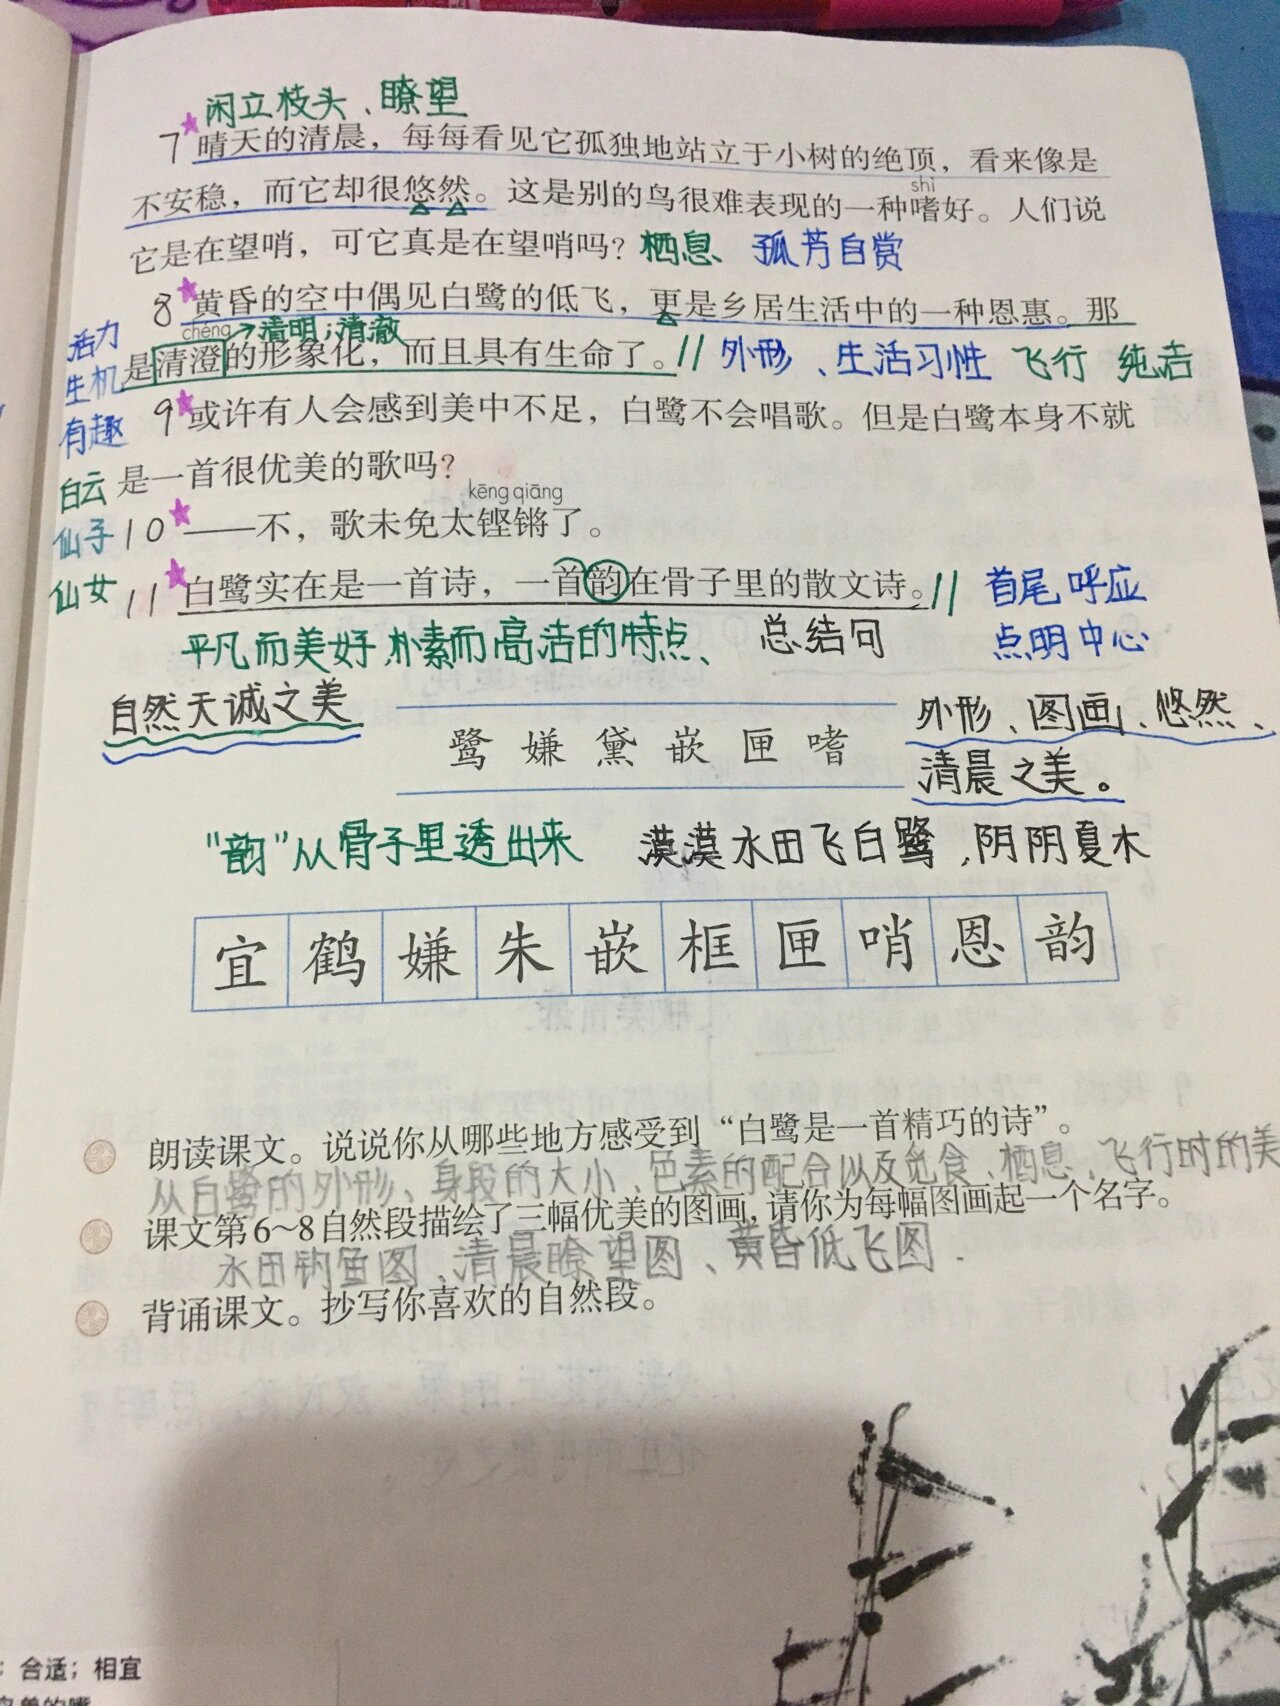 闲立枝头、瞭望
7 晴天的清晨，每每看见它孤独地站立于小树的绝顶，看来像是
shì
不安稳，而它却很悠然。这是别的鸟很难表现的一种嗜好。人们说
它是在望哨，可它真是在望哨吗？ 栖息 孤芳自赏
8 黄昏的空中偶见白鹭的低飞，更是乡居生活中的一种恩惠。那
chéng →清明；清澈
活力
是清澄的形象化，而且具有生命了。// 外形、生活习性 飞行 纯洁
生机
9 或许有人会感到美中不足，白鹭不会唱歌。但是白鹭本身不就
有趣
白云 是一首很优美的歌吗？
kēng qiāng
仙子 10 ——不，歌未免太铿锵了。
仙女 11 白鹭实在是一首诗，一首韵在骨子里的散文诗。// 首尾呼应
平凡而美好,朴素而高洁的特点、 总结句 点明中心
自然天诚之美
外形、图画、悠然、
鹭 嫌 黛 嵌 匣 嗜
清晨之美。
“韵”从骨子里透出来 漠漠水田飞白鹭，阴阴夏木
宜 鹤 嫌 朱 嵌 框 匣 哨 恩 韵
朗读课文。说说你从哪些地方感受到“白鹭是一首精巧的诗”。
从白鹭的外形、身段的大小、色素的配合以及觅食、栖息、飞行时的美
课文第6~8自然段描绘了三幅优美的图画，请你为每幅图画起一个名字。
水田钓鱼图、清晨瞭望图、黄昏低飞图.
背诵课文。抄写你喜欢的自然段。
：合适；相宜